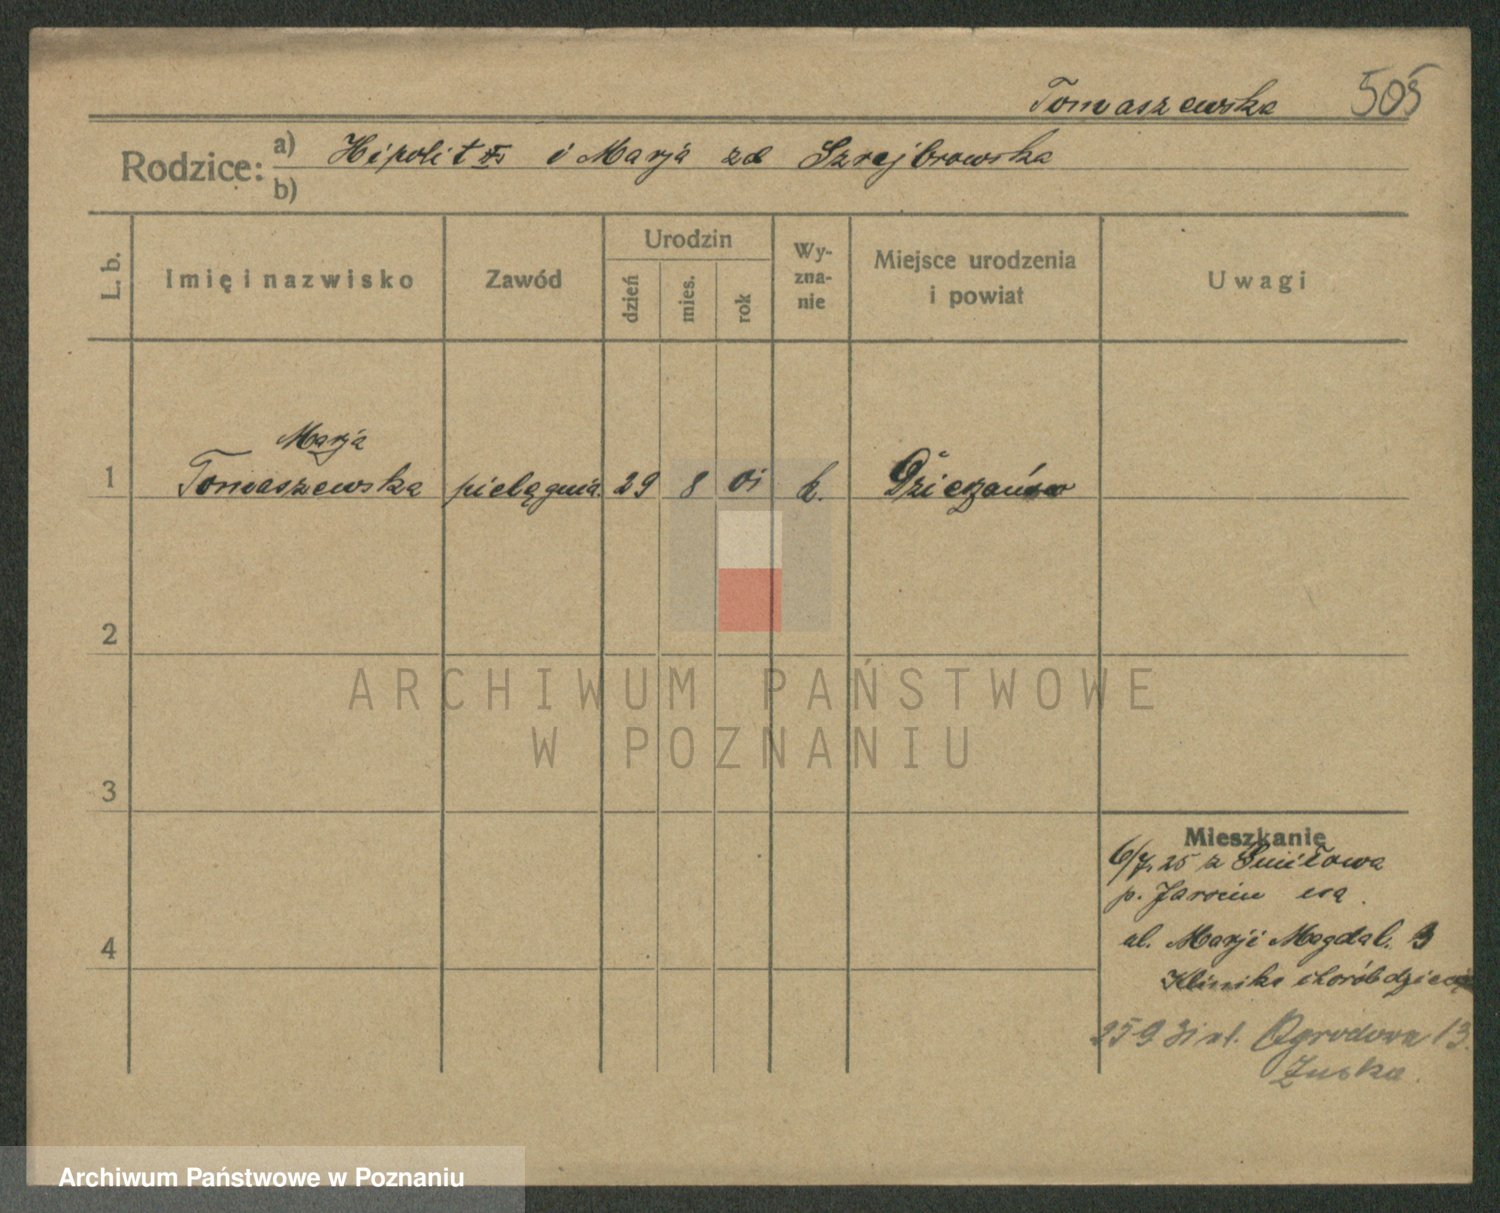 Tomaszewska 505
Rodzice: a) Hipolit i Marja zd Szrejbrowska
b)
L. b.
Imię i nazwisko
Zawód
Urodzin
dzień
mies.
rok
Wy-
zna-
nie
Miejsce urodzenia
i powiat
Uwagi
Marja
1 Tomaszewska pielągnia. 29 8 01 k.
2
3
4
Mieszkanie
6/7. 25 z Śmiłowa
p. Jarocin
ul. Marji Magdal. 3
Klinika chorób dziecię
25 9 31 ul. Ogrodowa 13.
ARCHIWUM PAŃSTWOWE
W POZNANIU
Archiwum Państwowe w Poznaniu